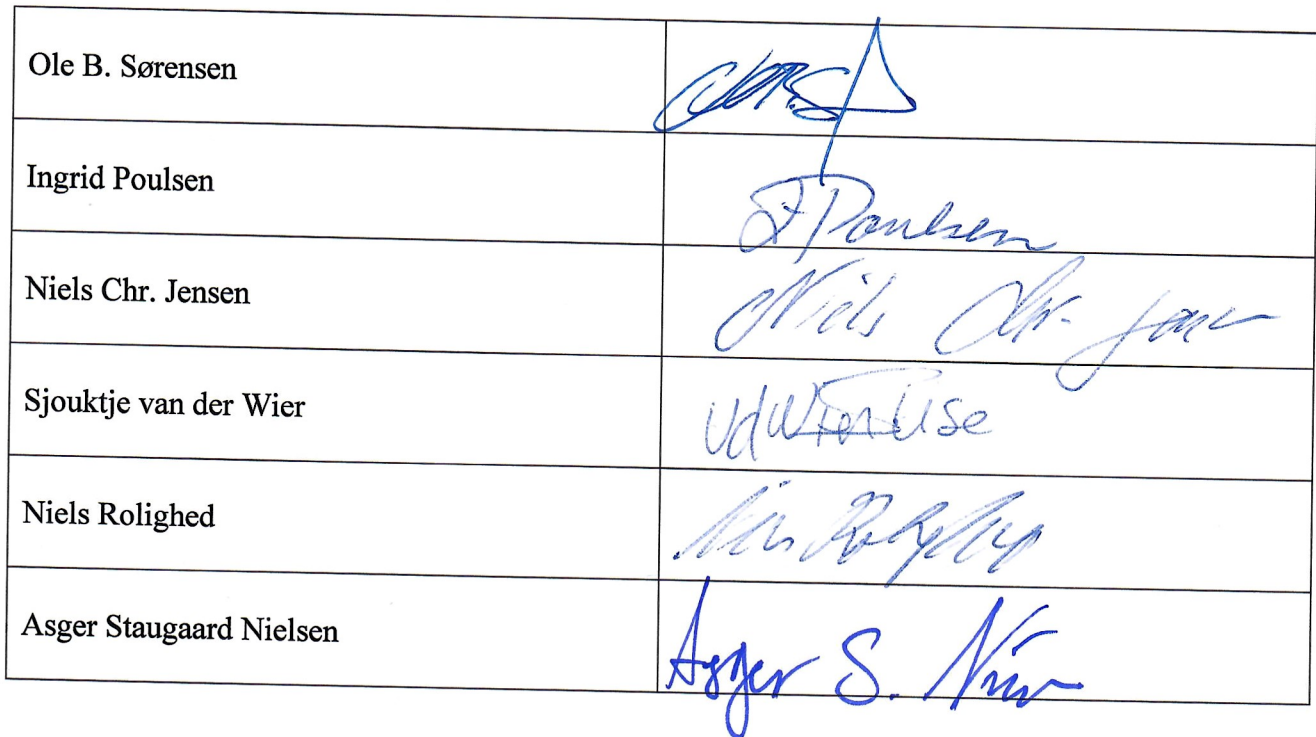 Ole B. Sørensen
Ingrid Poulsen
Poulsen
Niels Chr. Jensen
Niels Chr. Jensen
Sjouktje van der Wier
Niels Rolighed
Asger Staugaard Nielsen
Asger S.